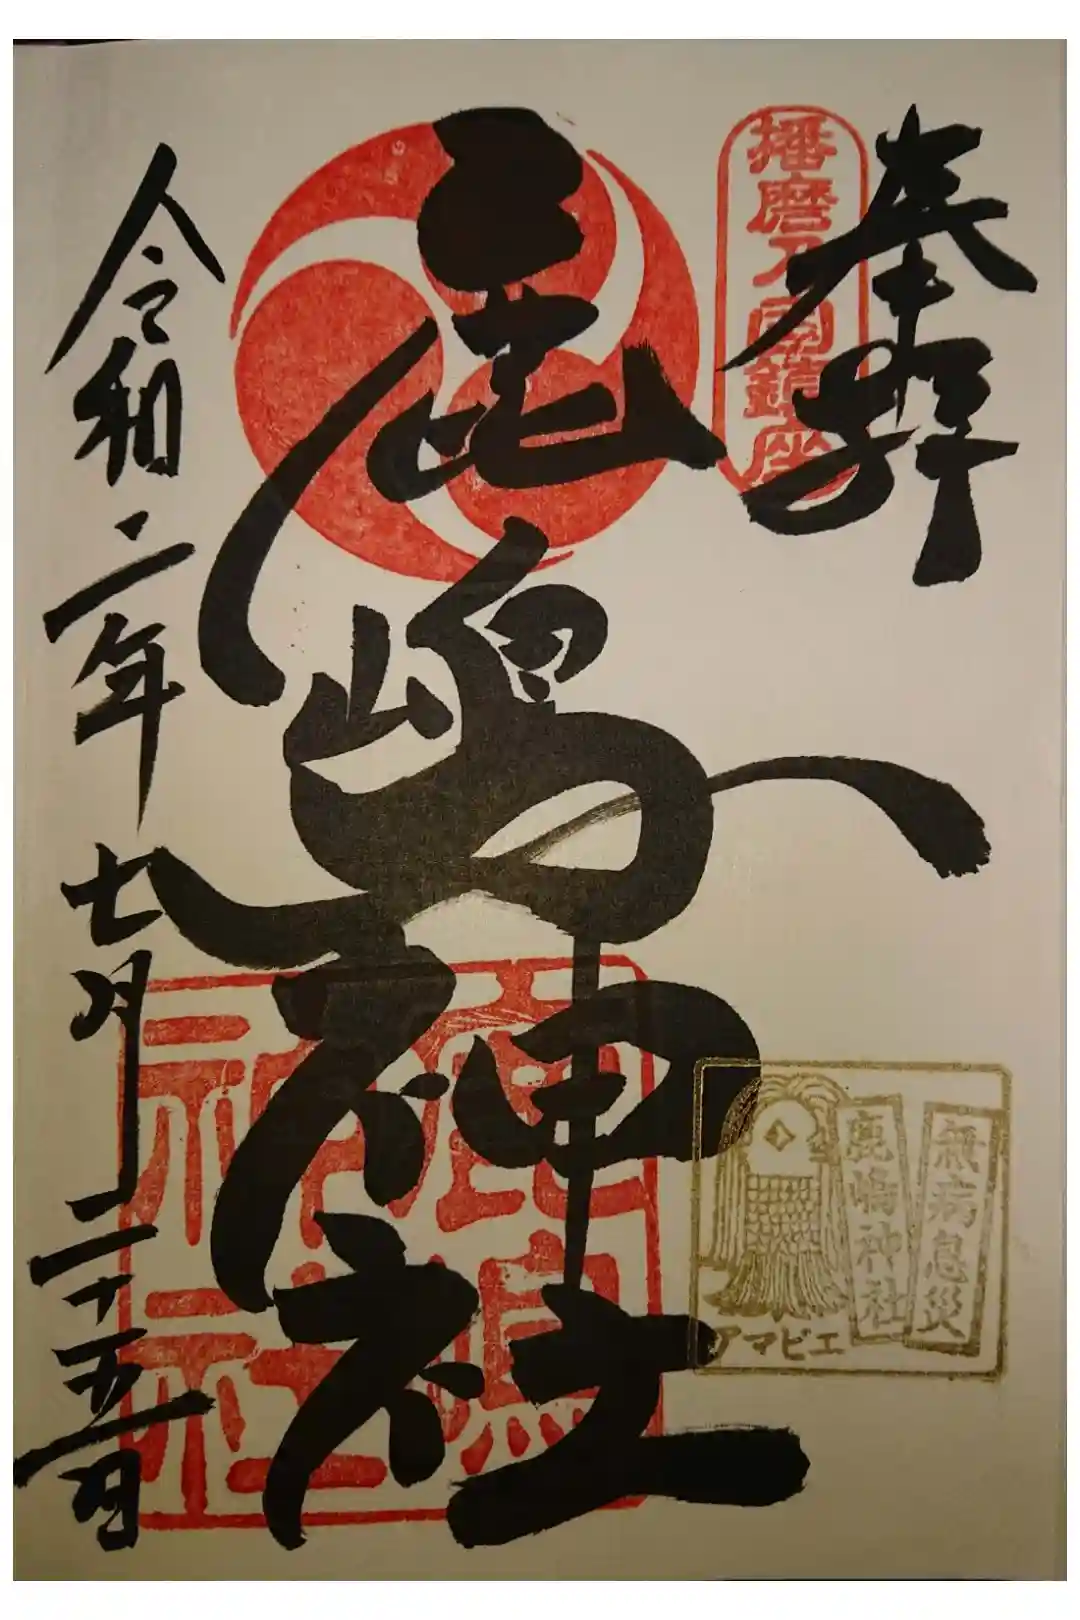 奉拝
播磨乃国鎮座
鹿嶋神社
鹿嶋神社
無病息災
鹿嶋神社
アマビエ
令和二年七月二十五日